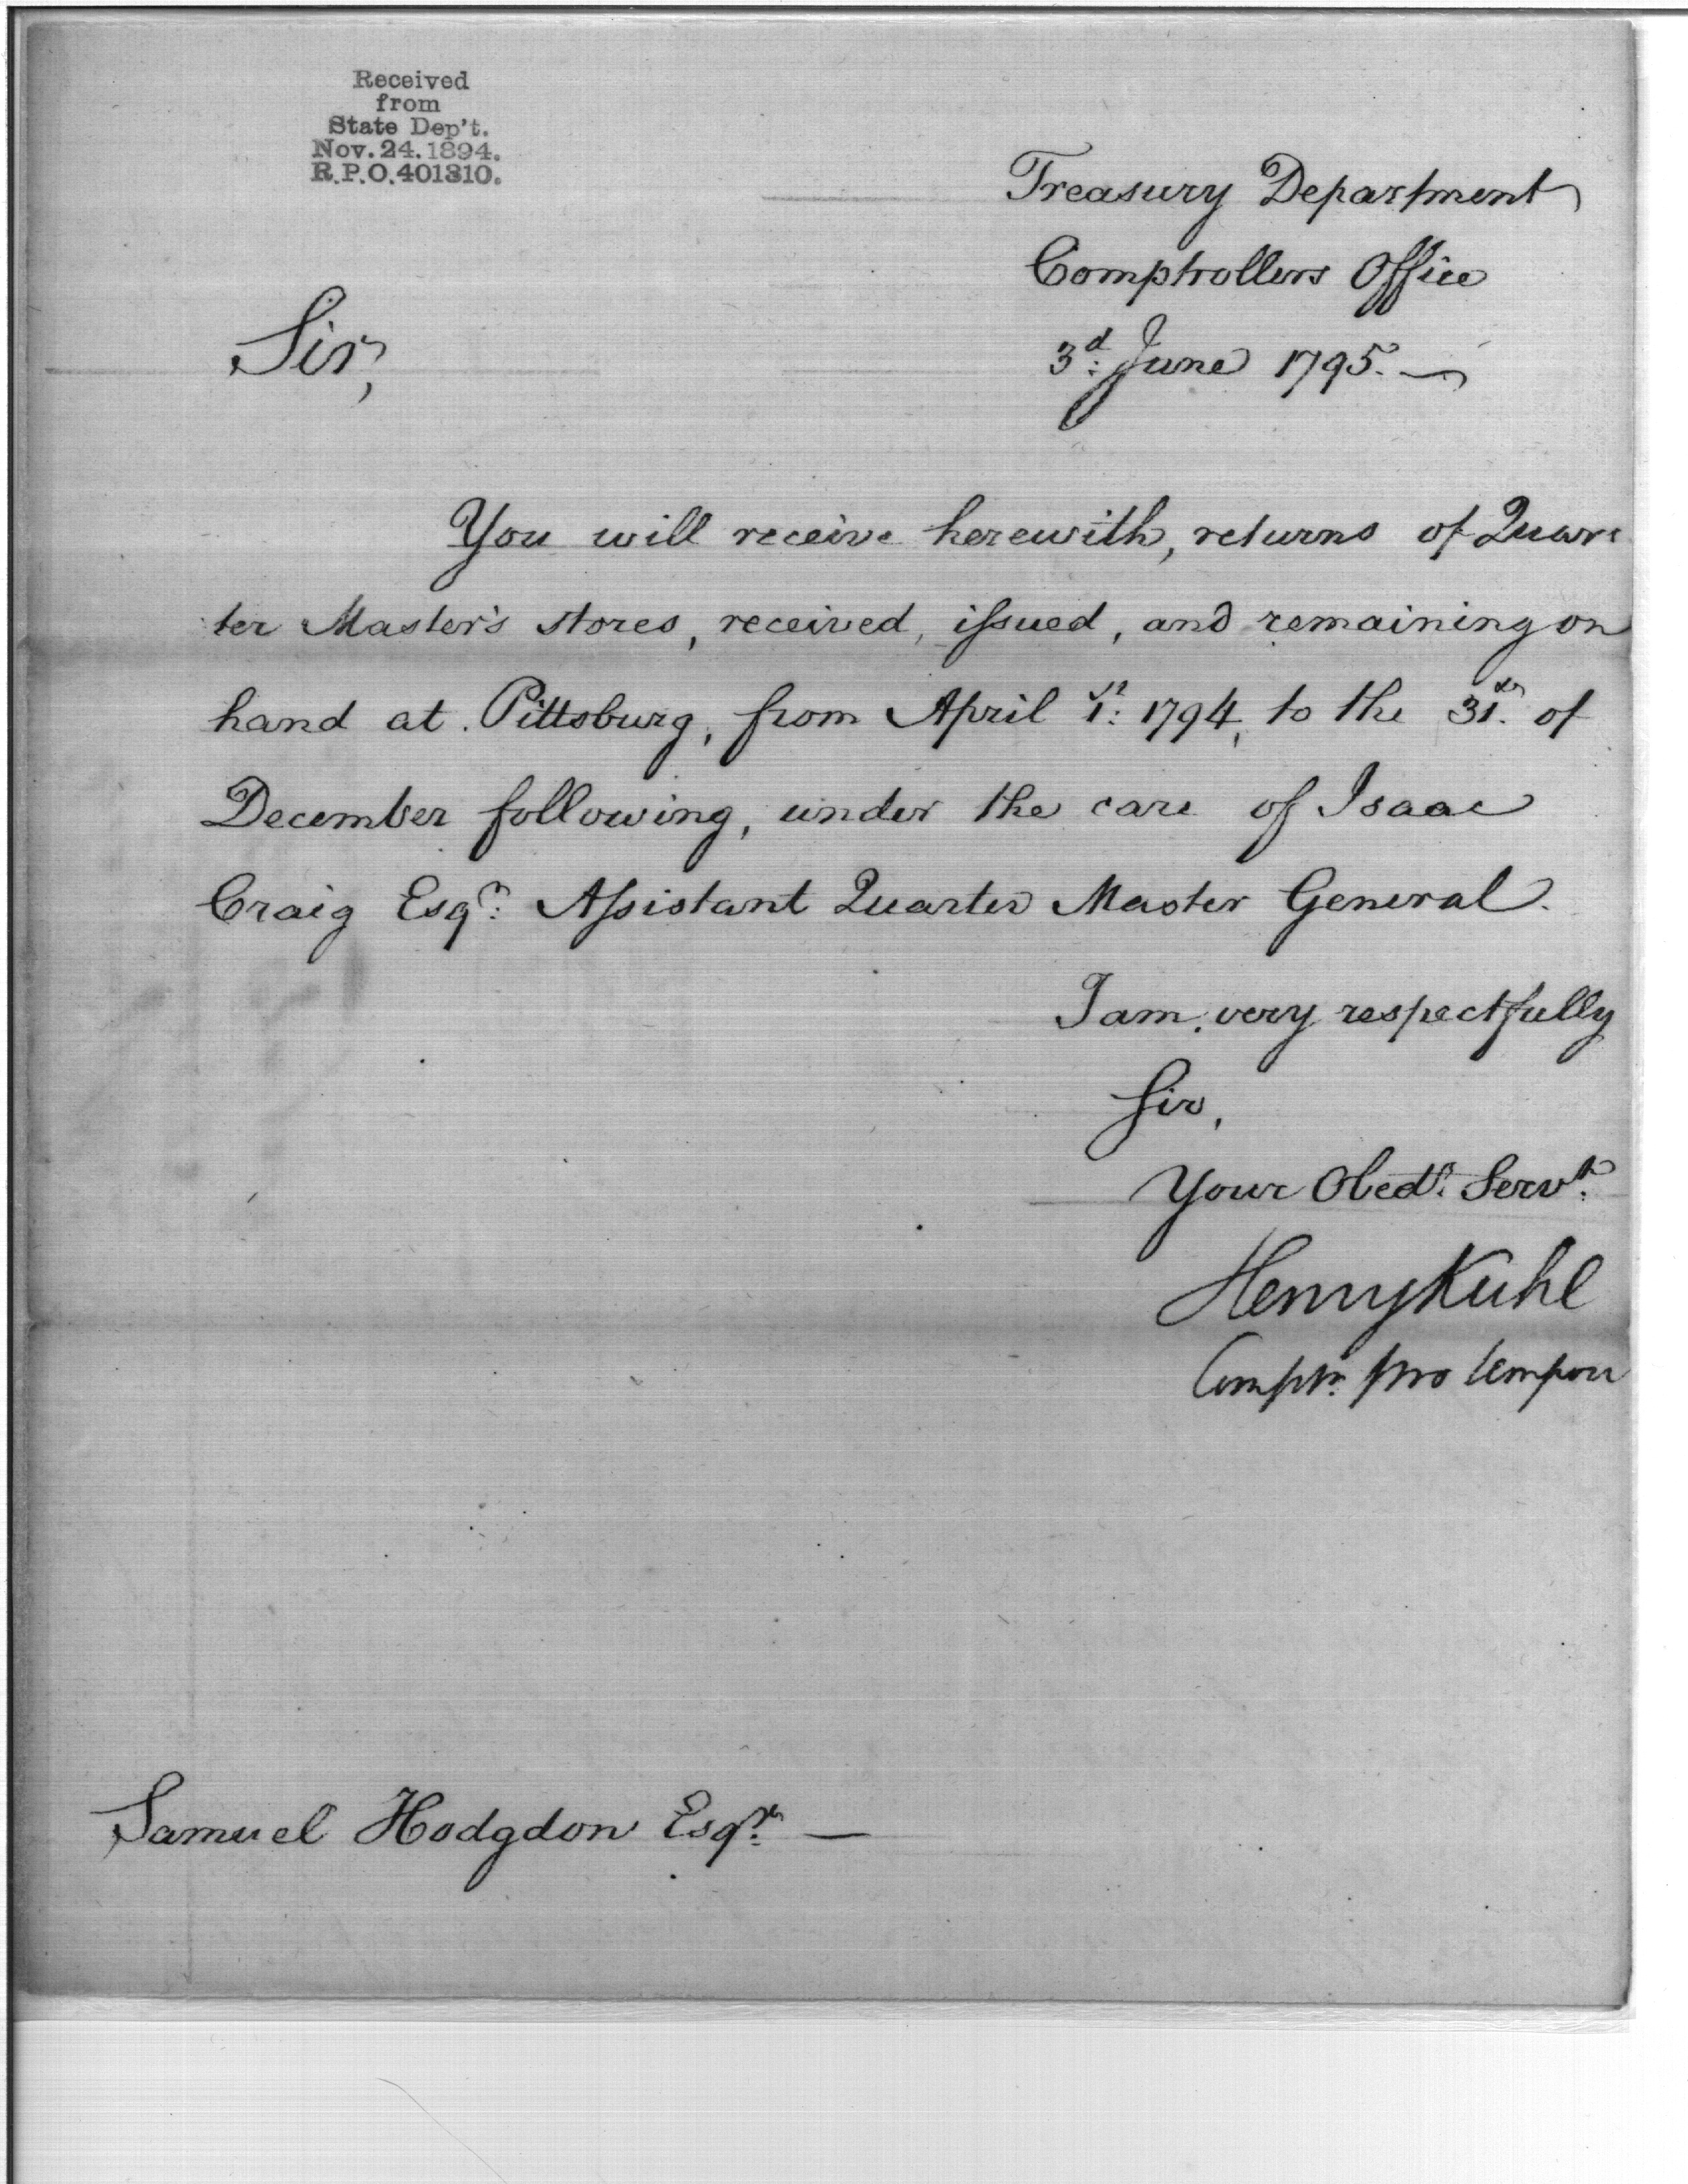 Received
from
State Dep't.
Nov. 24. 1894.
R.P.O. 401310.
Treasury Department
Comptrollers Office
3d: June 1795.—
Sir,
You will receive herewith, returns of Quar-
ter Master's stores, received, issued, and remaining on
hand at Pittsburg, from April 1st: 1794, to the 31st. of
December following, under the care of Isaac
Craig Esqr: Assistant Quarter Master General.
I am, very respectfully
Sir,
Your Obedt: Servt:
Henry Kuhl
Comptr: pro tempore
Samuel Hodgdon Esqr: —